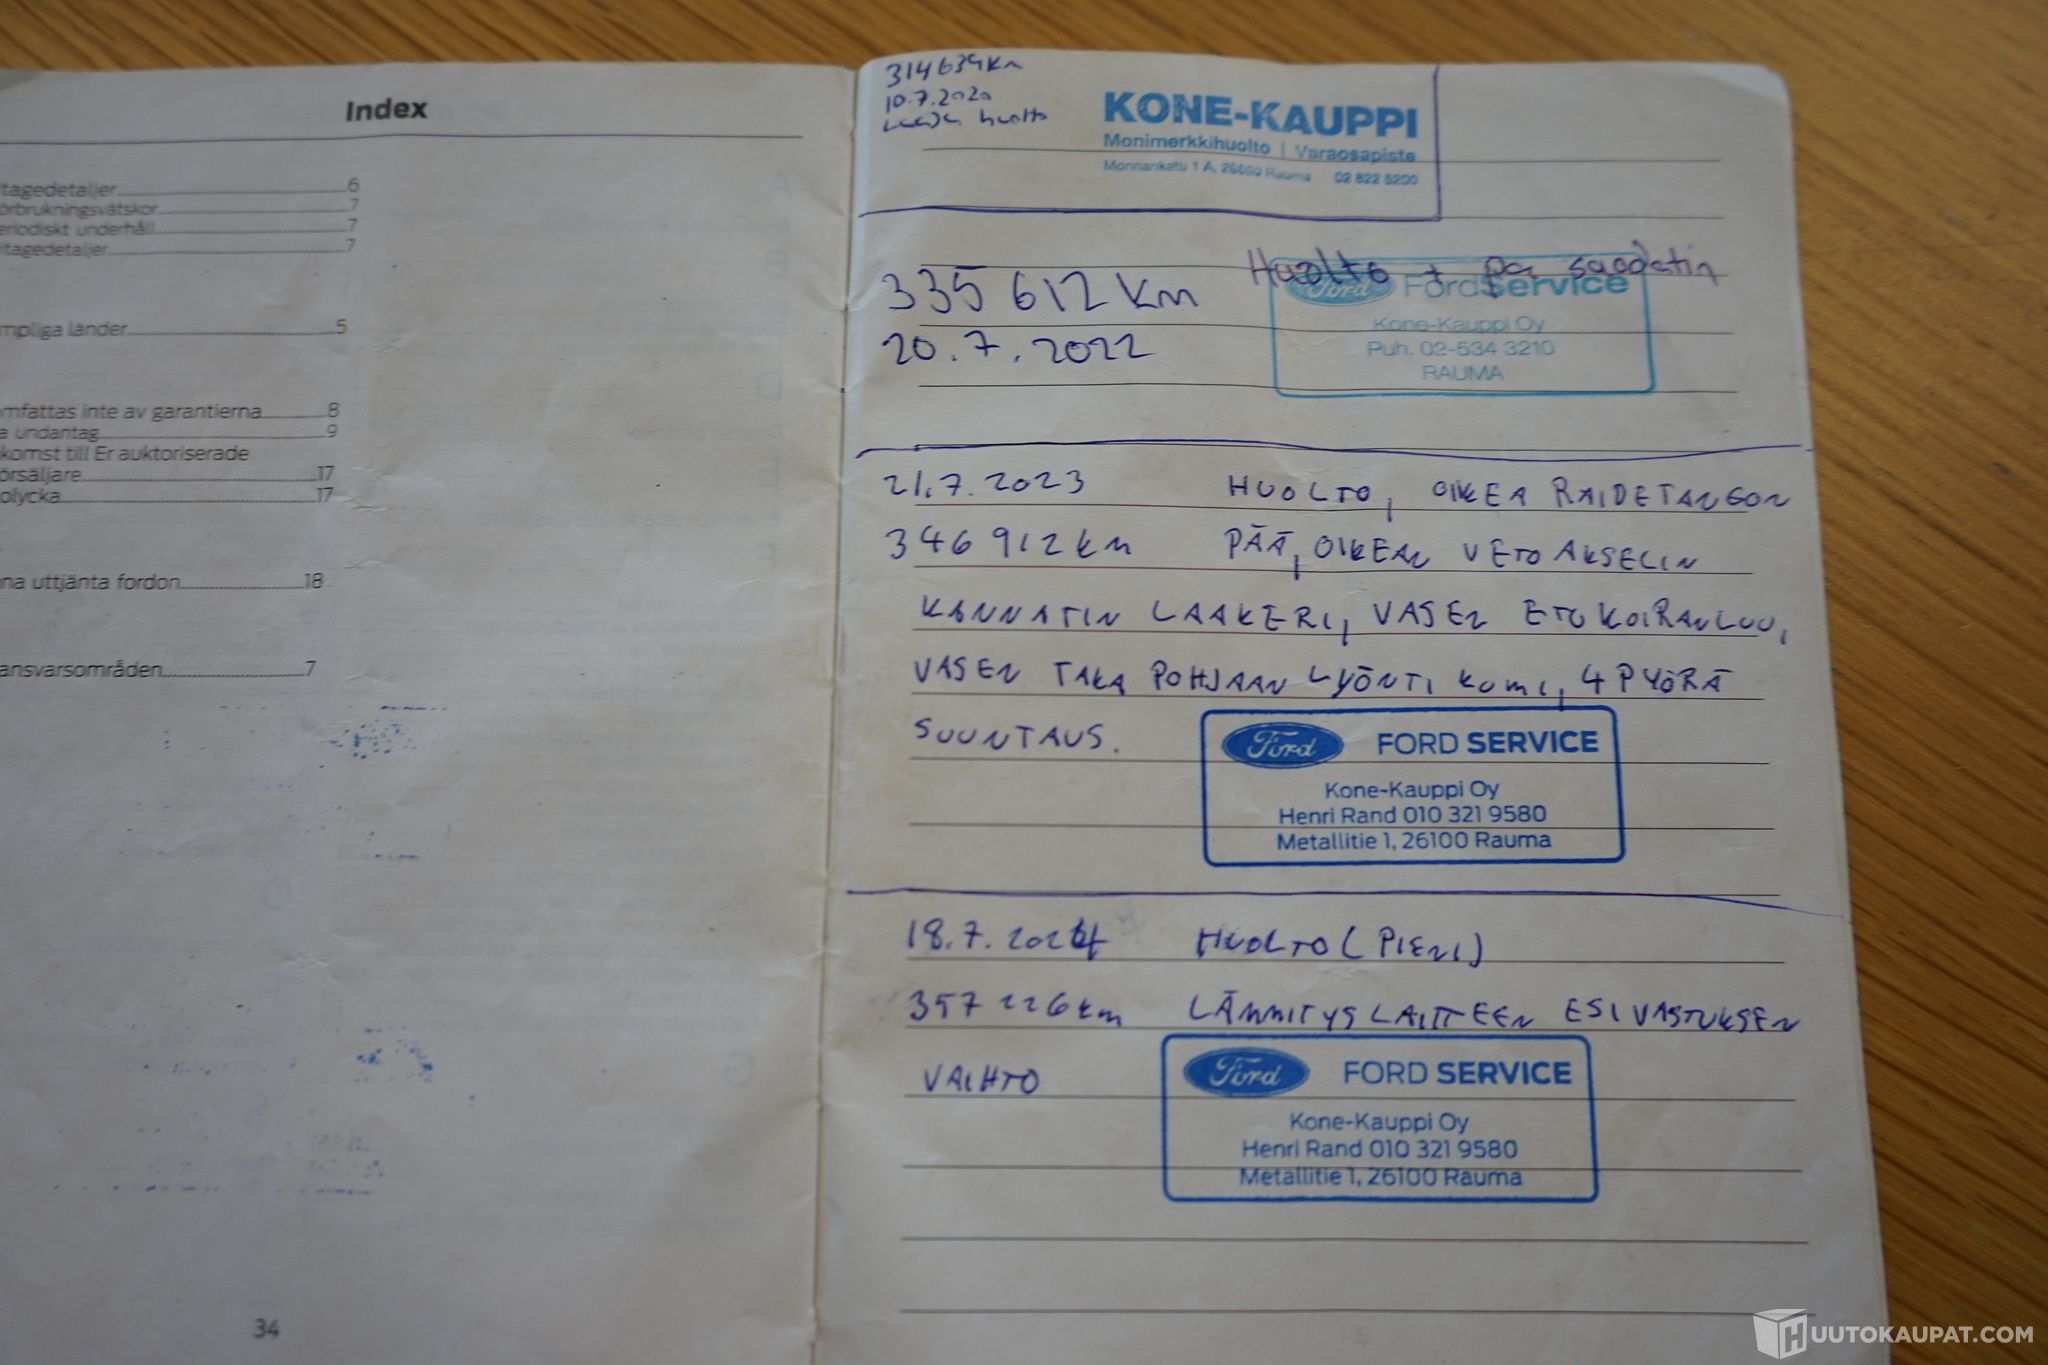 Index
tagedetaljer 6
örbrukningsvätskor 7
eriodiskt underhåll 7
itagedetaljer 7
mpliga länder 5
omfattas inte av garantierna 8
a undantag 9
komst till Er auktoriserade
örsäljare 17
olycka 17
na uttjänta fordon 18
ansvarsområden 7
34
314634km
10.7.2020
huolto
KONE-KAUPPI
Monimerkkihuolto | Varaosapiste
Monnankatu 1 A, 26500 Rauma 02 822 5200
335 612 km
20.7.2022
Huolto + pa säädatin
Ford FordService
Kone-Kauppi Oy
Puh. 02-534 3210
RAUMA
21.7.2023 HUOLTO, OIKEA RAIDETANGON
346 912 km PÄÄ, OIKEAN VETOAKSELIN
KANNATIN LAAKERI, VASEN ETUKOIRANLUU,
VASEN TAKA POHJAAN LYÖNTI KUMI, 4 PYÖRÄ
SUUNTAUS.
Ford FORD SERVICE
Kone-Kauppi Oy
Henri Rand 010 321 9580
Metallitie 1, 26100 Rauma
18.7.2024 HUOLTO (PIENI)
357 226 km LÄMMITYSLAITTEEN ESIVASTUKSEN
VAIHTO
Ford FORD SERVICE
Kone-Kauppi Oy
Henri Rand 010 321 9580
Metallitie 1, 26100 Rauma
HUUTOKAUPAT.COM